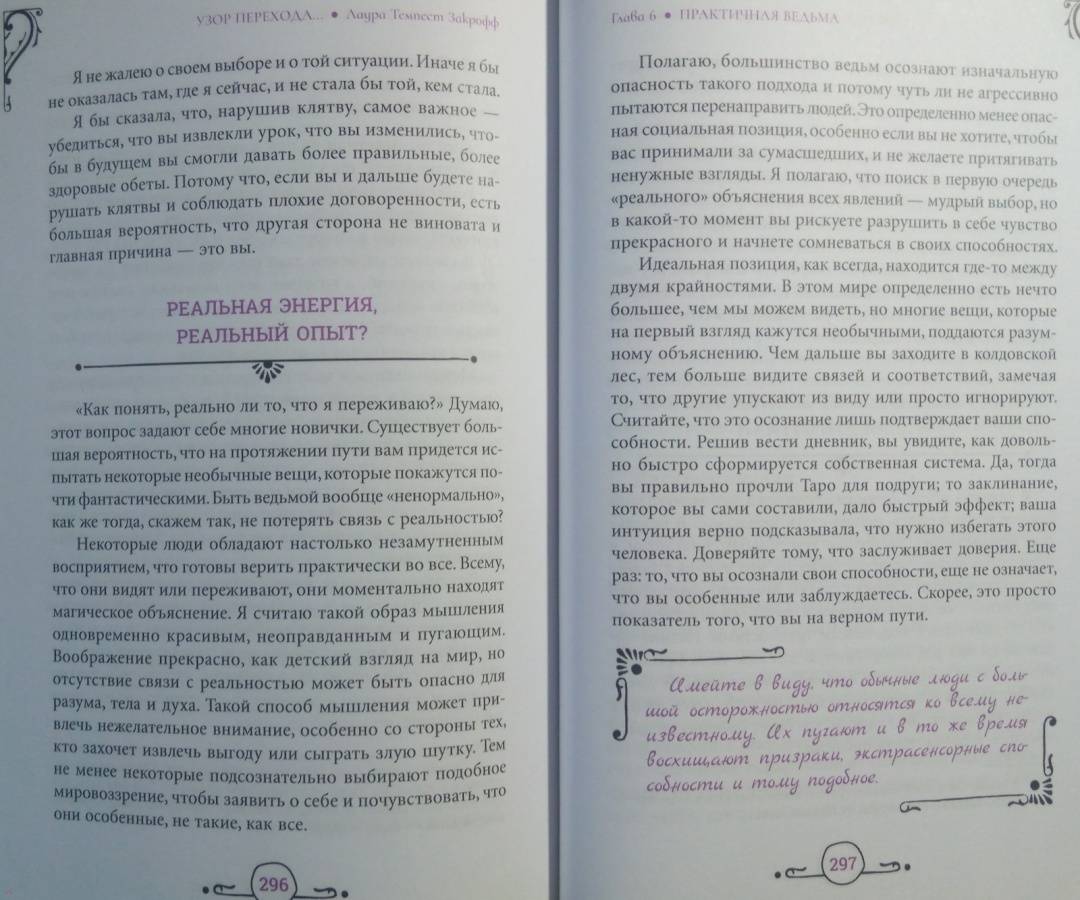 УЗОР ПЕРЕХОДА... • Лаура Темпест Закрофф
Я не жалею о своем выборе и о той ситуации. Иначе я бы
не оказалась там, где я сейчас, и не стала бы той, кем стала.
Я бы сказала, что, нарушив клятву, самое важное —
убедиться, что вы извлекли урок, что вы изменились, что-
бы в будущем вы смогли давать более правильные, более
здоровые обеты. Потому что, если вы и дальше будете на-
рушать клятвы и соблюдать плохие договоренности, есть
большая вероятность, что другая сторона не виновата и
главная причина — это вы.
РЕАЛЬНАЯ ЭНЕРГИЯ,
РЕАЛЬНЫЙ ОПЫТ?
«Как понять, реально ли то, что я переживаю?» Думаю,
этот вопрос задают себе многие новички. Существует боль-
шая вероятность, что на протяжении пути вам придется ис-
пытать некоторые необычные вещи, которые покажутся по-
чти фантастическими. Быть ведьмой вообще «ненормально»,
как же тогда, скажем так, не потерять связь с реальностью?
Некоторые люди обладают настолько незамутненным
восприятием, что готовы верить практически во все. Всему,
что они видят или переживают, они моментально находят
магическое объяснение. Я считаю такой образ мышления
одновременно красивым, неоправданным и пугающим.
Воображение прекрасно, как детский взгляд на мир, но
отсутствие связи с реальностью может быть опасно для
разума, тела и духа. Такой способ мышления может при-
влечь нежелательное внимание, особенно со стороны тех,
кто захочет извлечь выгоду или сыграть злую шутку. Тем
не менее некоторые подсознательно выбирают подобное
мировоззрение, чтобы заявить о себе и почувствовать, что
они особенные, не такие, как все.
296
Глава 6 • ПРАКТИЧНАЯ ВЕДЬМА
Полагаю, большинство ведьм осознают изначальную
опасность такого подхода и потому чуть ли не агрессивно
пытаются перенаправить людей. Это определенно менее опас-
ная социальная позиция, особенно если вы не хотите, чтобы
вас принимали за сумасшедших, и не желаете притягивать
ненужные взгляды. Я полагаю, что поиск в первую очередь
«реального» объяснения всех явлений — мудрый выбор, но
в какой-то момент вы рискуете разрушить в себе чувство
прекрасного и начнете сомневаться в своих способностях.
Идеальная позиция, как всегда, находится где-то между
двумя крайностями. В этом мире определенно есть нечто
большее, чем мы можем видеть, но многие вещи, которые
на первый взгляд кажутся необычными, поддаются разум-
ному объяснению. Чем дальше вы заходите в колдовской
лес, тем больше видите связей и соответствий, замечая
то, что другие упускают из виду или просто игнорируют.
Считайте, что это осознание лишь подтверждает ваши спо-
собности. Решив вести дневник, вы увидите, как доволь-
но быстро сформируется собственная система. Да, тогда
вы правильно прочли Таро для подруги; то заклинание,
которое вы сами составили, дало быстрый эффект; ваша
интуиция верно подсказывала, что нужно избегать этого
человека. Доверяйте тому, что заслуживает доверия. Еще
раз: то, что вы осознали свои способности, еще не означает,
что вы особенные или заблуждаетесь. Скорее, это просто
показатель того, что вы на верном пути.
Имейте в виду, что обычные люди с боль-
шой осторожностью относятся ко всему не-
известному. Их пугают и в то же время
восхищают призраки, экстрасенсорные спо-
собности и тому подобное.
297